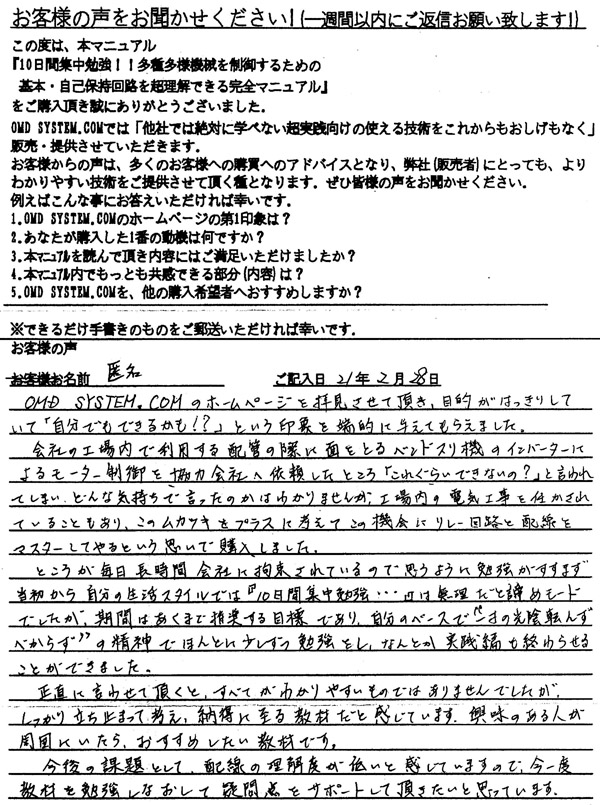 お客様の声をお聞かせください！（一週間以内にご返信お願い致します！）
この度は、本マニュアル
『10日間集中勉強！！多種多様機械を制御するための
基本・自己保持回路を超理解できる完全マニュアル』
をご購入頂き誠にありがとうございました。
OMD SYSTEM.COMでは「他社では絶対に学べない超実践向けの使える技術をこれからもおしげもなく」
販売・提供させていただきます。
お客様からの声は、多くのお客様への購買へのアドバイスとなり、弊社（販売者）にとっても、より
わかりやすい技術をご提供させて頂く種となります。ぜひ皆様の声をお聞かせください。
例えばこんな事にお答えいただければ幸いです。
1.OMD SYSTEM.COMのホームページの第1印象は？
2.あなたが購入した1番の動機は何ですか？
3.本マニュアルを読んで頂き内容にはご満足いただけましたか？
4.本マニュアル内でもっとも共感できる部分（内容）は？
5.OMD SYSTEM.COMを、他の購入希望者へおすすめしますか？
※できるだけ手書きのものをご郵送いただければ幸いです。
お客様の声
お客様お名前 匿名 ご記入日 21年2月28日
OMD SYSTEM.COMのホームページを拝見させて頂き、目的がはっきりして
いて「自分でもできるかも!?」という印象を端的に与えてもらえました。
会社の工場内で利用する配管の隙に面をとるベンドスリ機のインバーターに
よるモーター制御を協力会社へ依頼したところ「これぐらいできないの？」と言われ
てしまい、どんな気持ちで言ったのかはわかりませんが、工場内の電気工事を任かされ
ていることもあり、このムカツキをプラスに考えてこの機会にリレー回路と配線を
マスターしてやるという思いで購入しました。
ところが毎日長時間会社に拘束されているので思うように勉強がすすまず
当初から自分の生活スタイルでは『10日間集中勉強・・・』は無理だと諦めモード
でしたが、期間はあくまで推奨する目標であり、自分のペースで“一寸の光陰軽んず
べからず”の精神でほんとに少しずつ勉強をし、なんとか実践編も終わらせる
ことができました。
正直に言わせて頂くと、すべてがわかりやすいものではありませんでしたが、
しっかり立ち止まって考え、納得に至る教材だと感じています。興味のある人が
周囲にいたら、おすすめしたい教材です。
今後の課題として、配線の理解度が低いと感じていますので、今一度
教材を勉強しなおして疑問点をサポートして頂きたいと思っています。